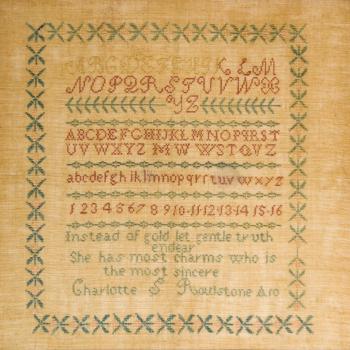 ABCDEFGHIJKLM
NOPQRSTUVWX
YZ
ABCDEFGHIJKLMNOPQRST
UVWXYZ MWWSTQVZ
abcdefghiklmnopqrstuvwxyz
1 2 3 4 5 6 7 8 9 10 11 12 13 14 15 16
Instead of gold let gentle truth
endear
She has most charms who is
the most sincere
Charlotte S